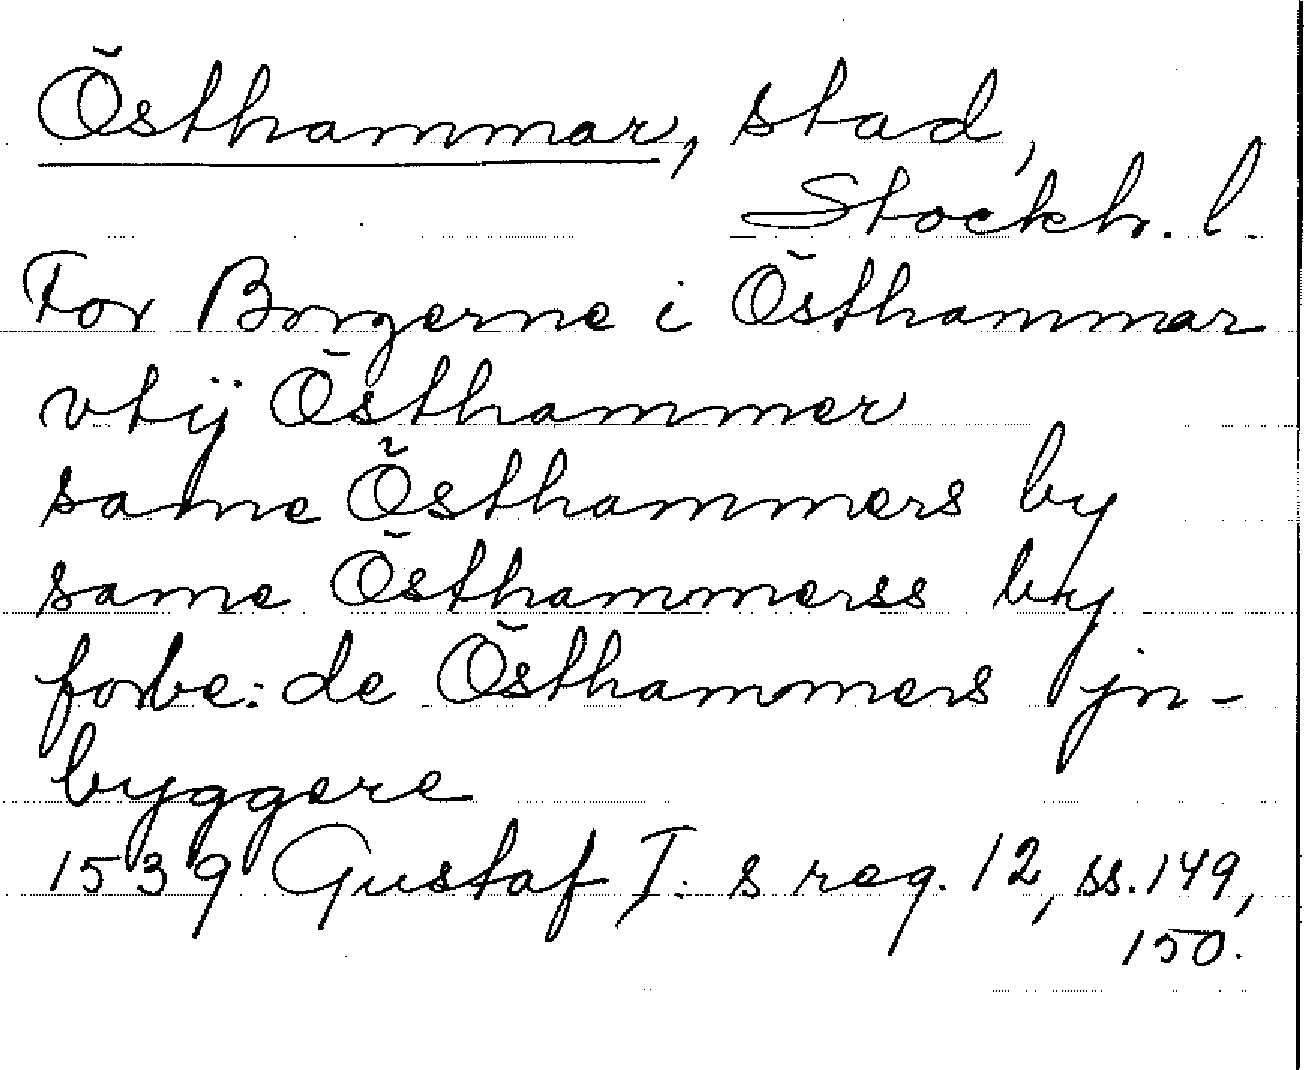 Östhammar, stad,
Stockh. l.
For Borgerne i Östhammar
vtij Östhammer
same Östhammers by
same Östhammerss by
forbe: de Östhammers jn-
byggere
1539 Gustaf I: s reg. 12, ss. 149,
150.